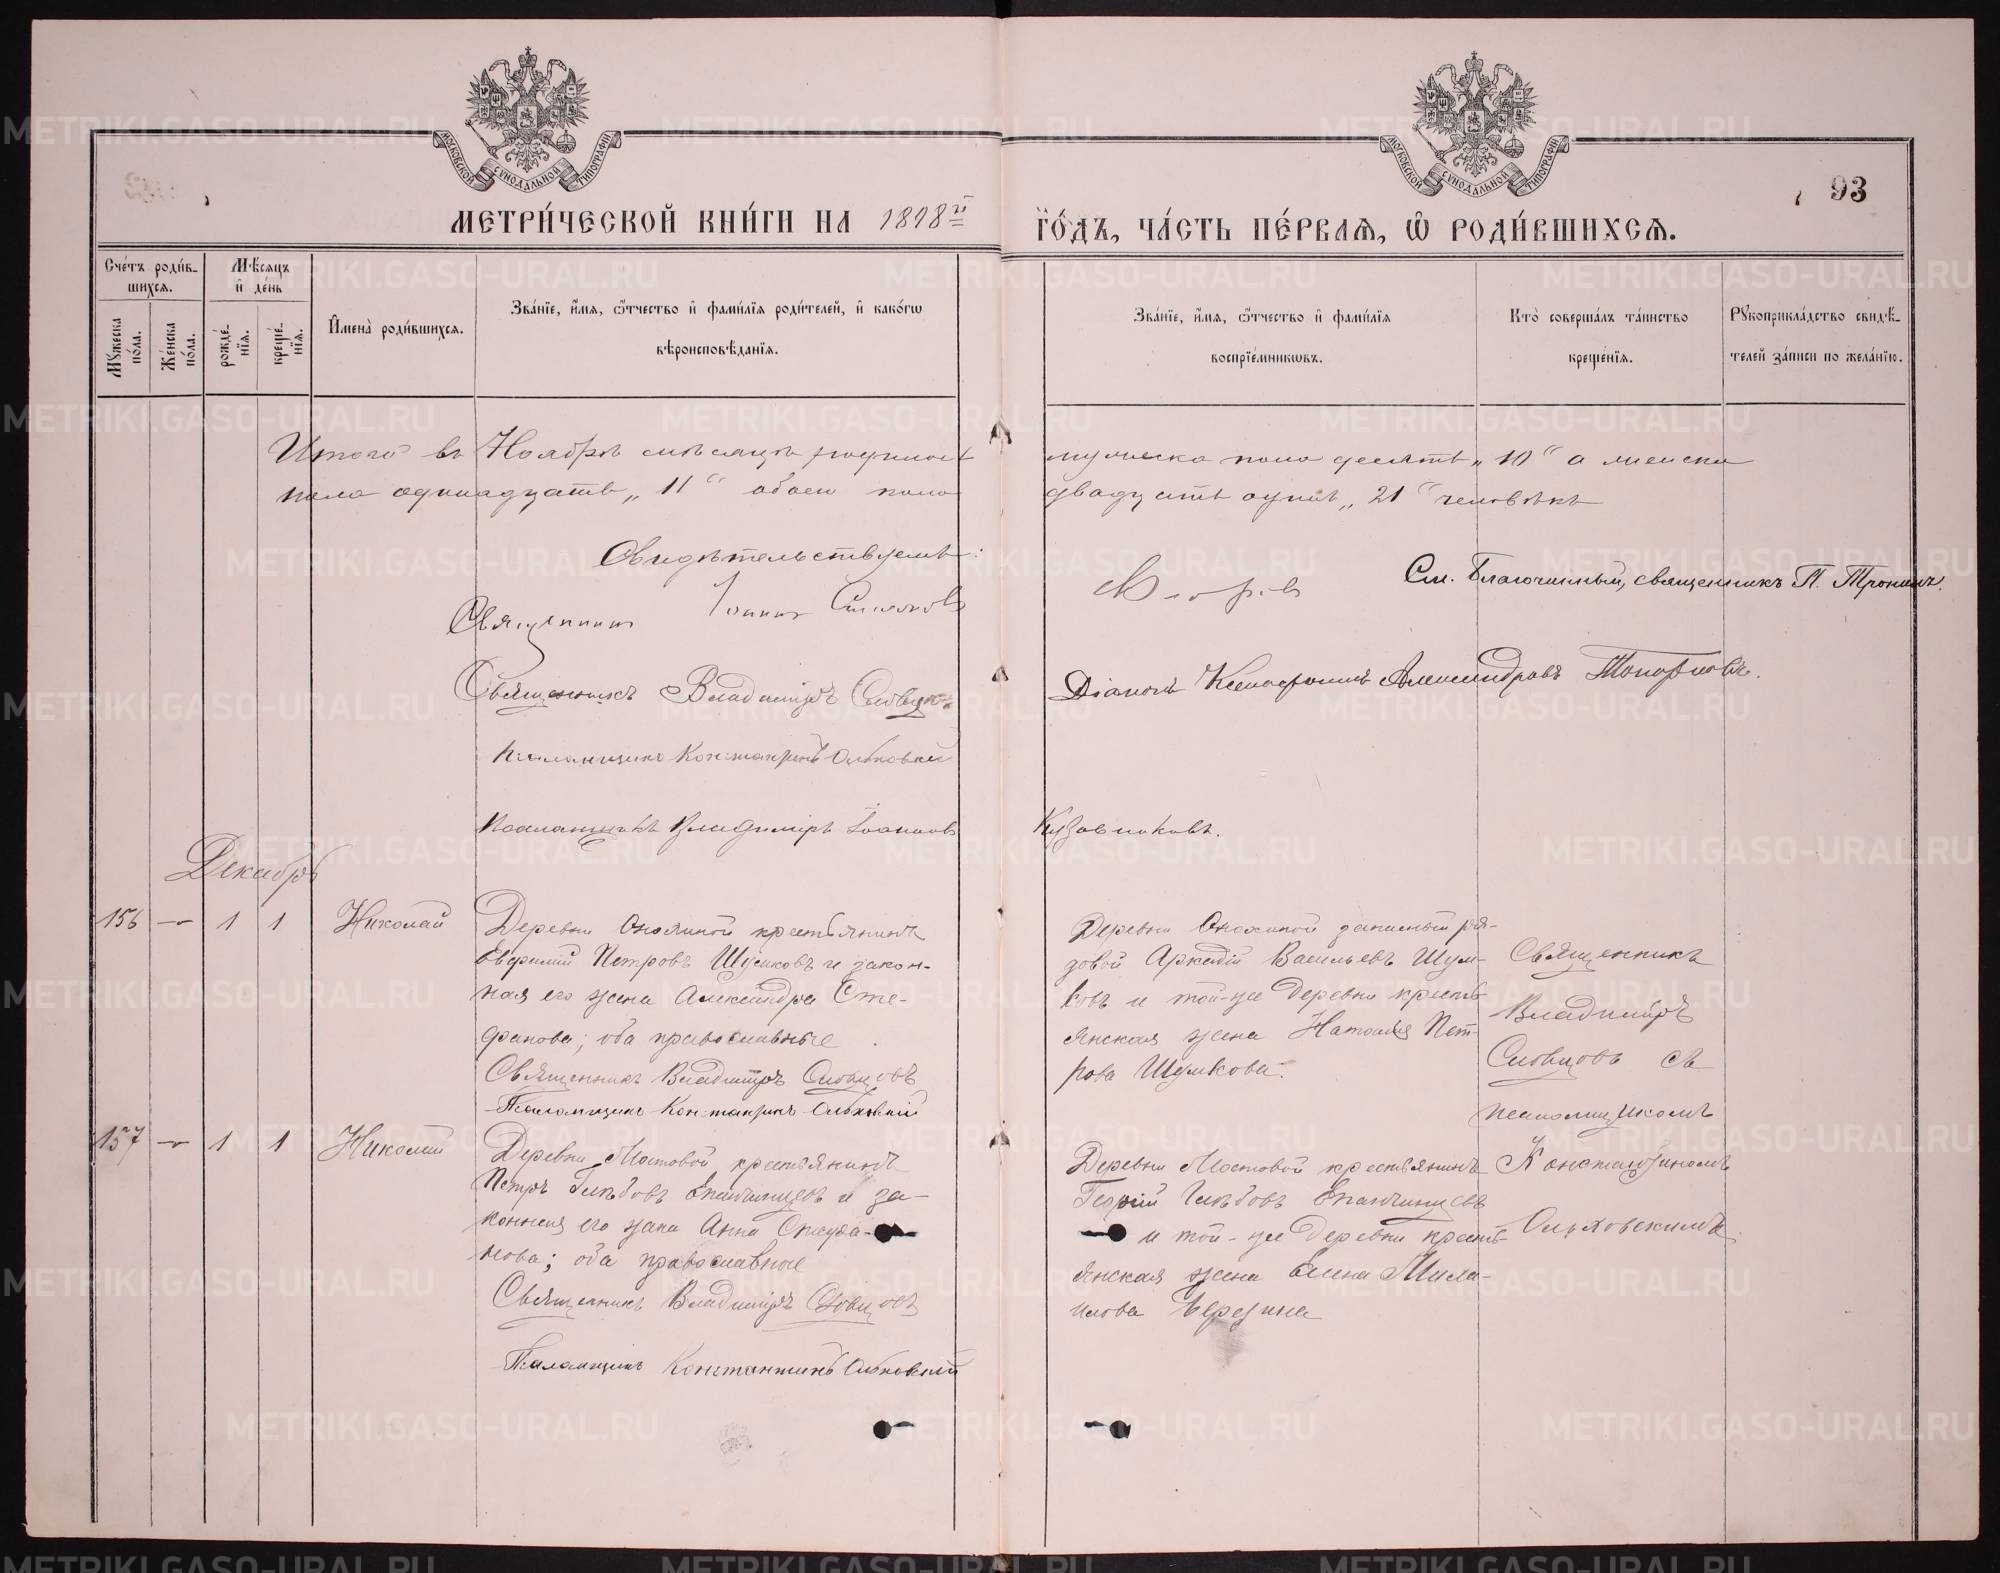 МОСКОВСКОЙ СѴНОДАЛЬНОЙ ТИПОГРАФІИ
МОСКОВСКОЙ СѴНОДАЛЬНОЙ ТИПОГРАФІИ
93
МЕТРИ́ЧЕСКОЙ КНИ́ГИ НА 1898й
ГО́ДЪ, ЧА́СТЬ ПЕ́РВАЯ, Ѽ РОДИ́ВШИХСЯ.
Сче́тъ роди́в-
шихся.
Мѣ́сяцъ
и҆ де́нь
Мꙋ́жеска по́ла.
Же́нска по́ла.
рожде́-нїя.
креще́-нїя.
И҆мена̀ роди́вшихся.
Зва́нїе, и҆́мя, ѻ҆́тчество и҆ фами́лїя роди́телей, и҆ како́гѡ
вѣроисповѣ́данїя.
Зва́нїе, и҆́мя, ѻ҆́тчество и҆ фами́лїя
воспрїе́мникѡвъ.
Кто̀ соверша́лъ та́инство
креще́нїя.
Рꙋкоприкла́дство свидѣ́-
телей за́писи по жела́нїю.
Итого въ Ноябрѣ мѣсяцѣ родилось мужеска пола десять „10“ а женска
пола одинадцать „11“ обоего пола двадцать одинъ „21“ человѣкъ
Свидѣтельствуемъ:
См. Благочинный, священникъ П. Тронинъ.
Священникъ Іоаннъ
Священникъ Владимиръ Словцовъ
Діаконъ Ксенофонтъ Александровъ Топорковъ.
Псаломщикъ Константинъ Ольховскій
Псаломщикъ Владимиръ Іоанновъ Кузовниковъ.
Декабрь
156 — 1 1 Николай
Деревни Онохиной крестьянинъ
Евфимій Петровъ Шумковъ и закон-
ная его жена Александра Сте-
фанова; оба православные
Священникъ Владимиръ Словцовъ
Псаломщикъ Константинъ Ольховскій
Деревни Онохиной запасный ря-
довой Аркадій Васильевъ Шум-
ковъ и той-же деревни кресть-
янская жена Наталія Пет-
рова Шумкова.
Священникъ
Владимиръ
Словцовъ съ
псаломщикомъ
Константиномъ
Ольховскимъ.
157 — 1 1 Николай
Деревни Мостовой крестьянинъ
Петръ Глѣбовъ Епанчинцевъ и за-
конная его жена Анна
нова; оба православные
Священникъ Владимиръ Словцовъ
Псаломщикъ Константинъ Ольховскій
Деревни Мостовой крестьянинъ
Георгій Глѣбовъ Епанчинцевъ
и той-же деревни кресть-
янская жена Елена Миха-
илова Березина
METRIKI.GASO-URAL.RU